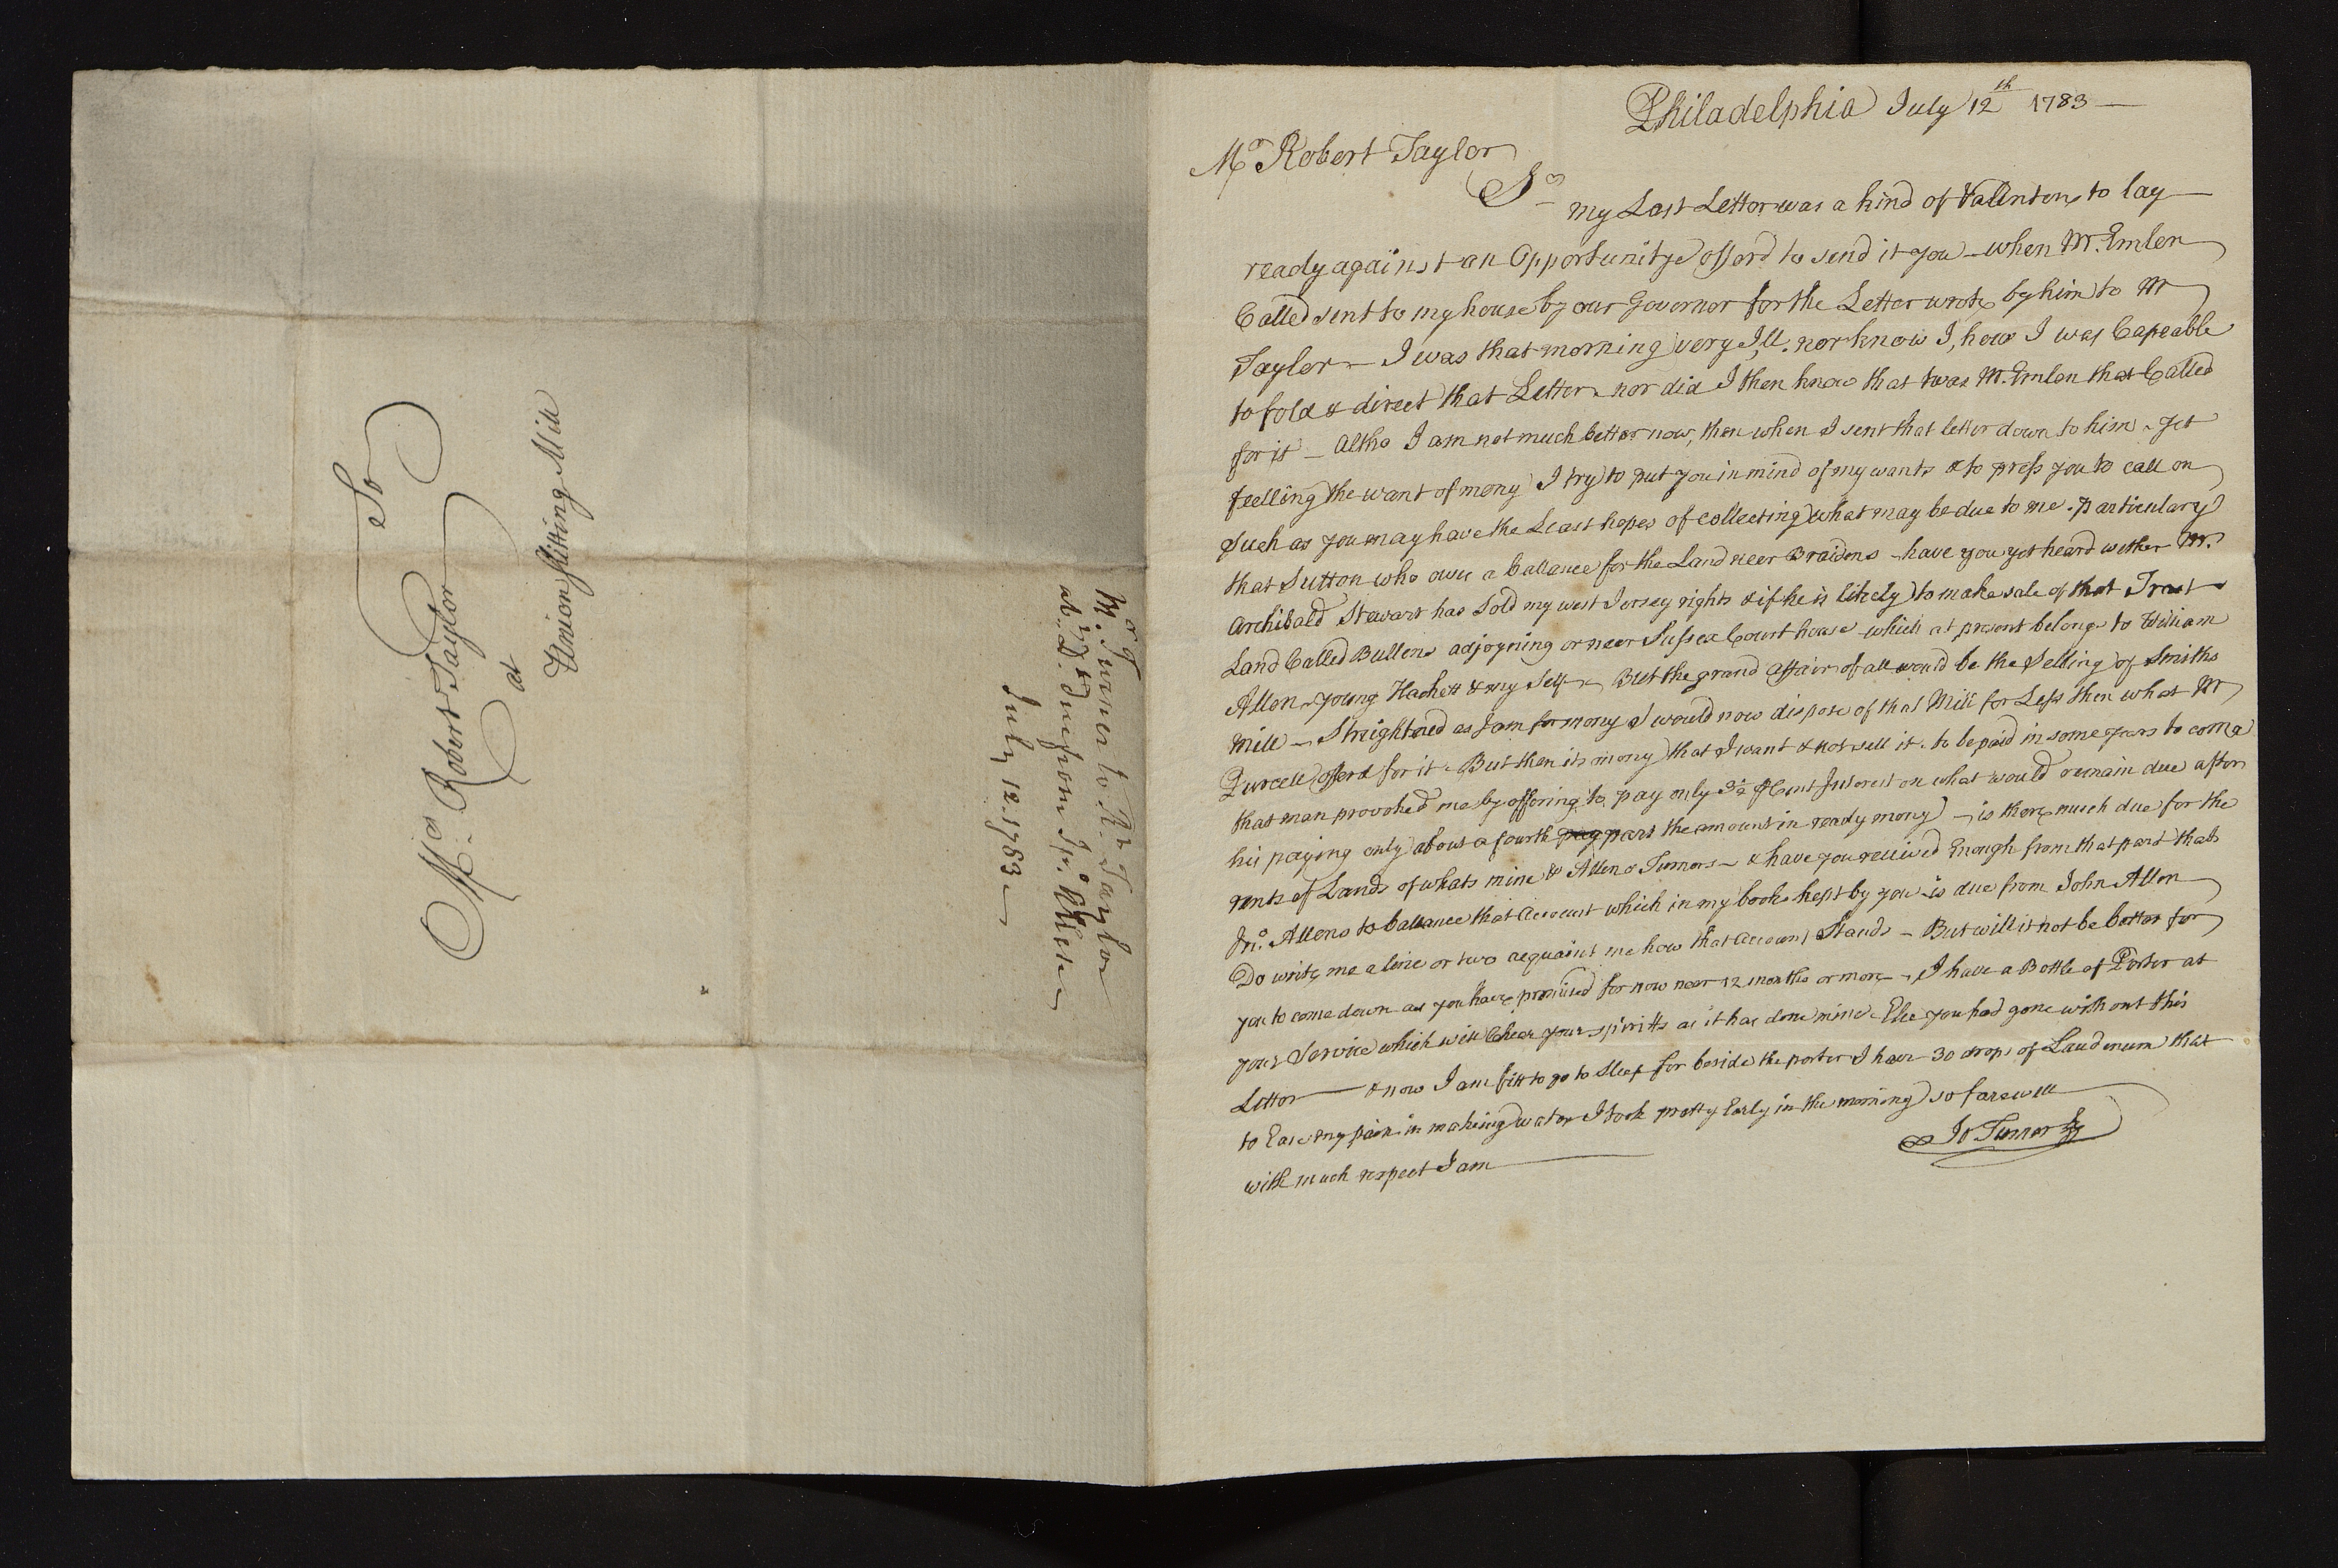 To
Mr. Robert Taylor
at
Union slitting Mill
Mr. Turner to R. Taylor
abt. ye Debt due from Jno. Allen
July 12. 1783
Philadelphia July 12th 1783
Mr Robert Taylor
Sr
my Last Letter was a kind of to lay
ready against an Opportunitye offerd to send it you – when Mr. Emlen
Called sent to my house by our Governor for the Letter wrote by him to Mr
Taylor – I was that morning very Ill. nor know I, how I was Capeable
to fold & direct that Letter – nor did I then know that twas Mr. Emlen that Called
for it – Altho I am not much better now, then when I sent that letter down to him – yet
feelling the want of mony I try to put you in mind of my wants & to press you to call on
such as you may have the Least hopes of collecting what may be due to me – Particulary
that Sutton who owes a ballance for the Land neer Braidens – have you yet heard wether Mr.
Archibald Stewart has Sold my west Jersey rights & if he is likely to make sale of that Tract
Land Called Bullens adjoyning or neer Sussex Court house – which at present belongs to William
Allen – young Hackett & my Self – But the grand affair of all would be the Selling of Smiths
Mill – Streightned as I am for mony I would now dispose of that Mill for Less then what Mr
Purcell offerd for it – But then its mony that I want & not sell it – to be paid in some years to come
that man provoked me by offering to pay only 3½ P Cent Interest on what would remain due after
his paying only about a fourth pay part the amount in ready mony) – is there much due for the
rents of Lands of whats mine & Allen & Turners – & have you received Enough from that part thats
Jno. Allens to ballance that Account which in my books kept by you – is due from John Allen
Do write me a line or two acquaint me how that account Stands – But will it not be better for
you to come down as you have promised for now near 12 months or more – I have a Bottle of Porter at
your Service which will Chear your spiritts as it has done mine – Else you had gone without this
Letter — & now I am fitt to go to sleep for beside the porter I have 30 drops of Laudenum that
to Ease my pain in making water I took pretty Early in the morning so farewell
with much respect I am
Jos Turner